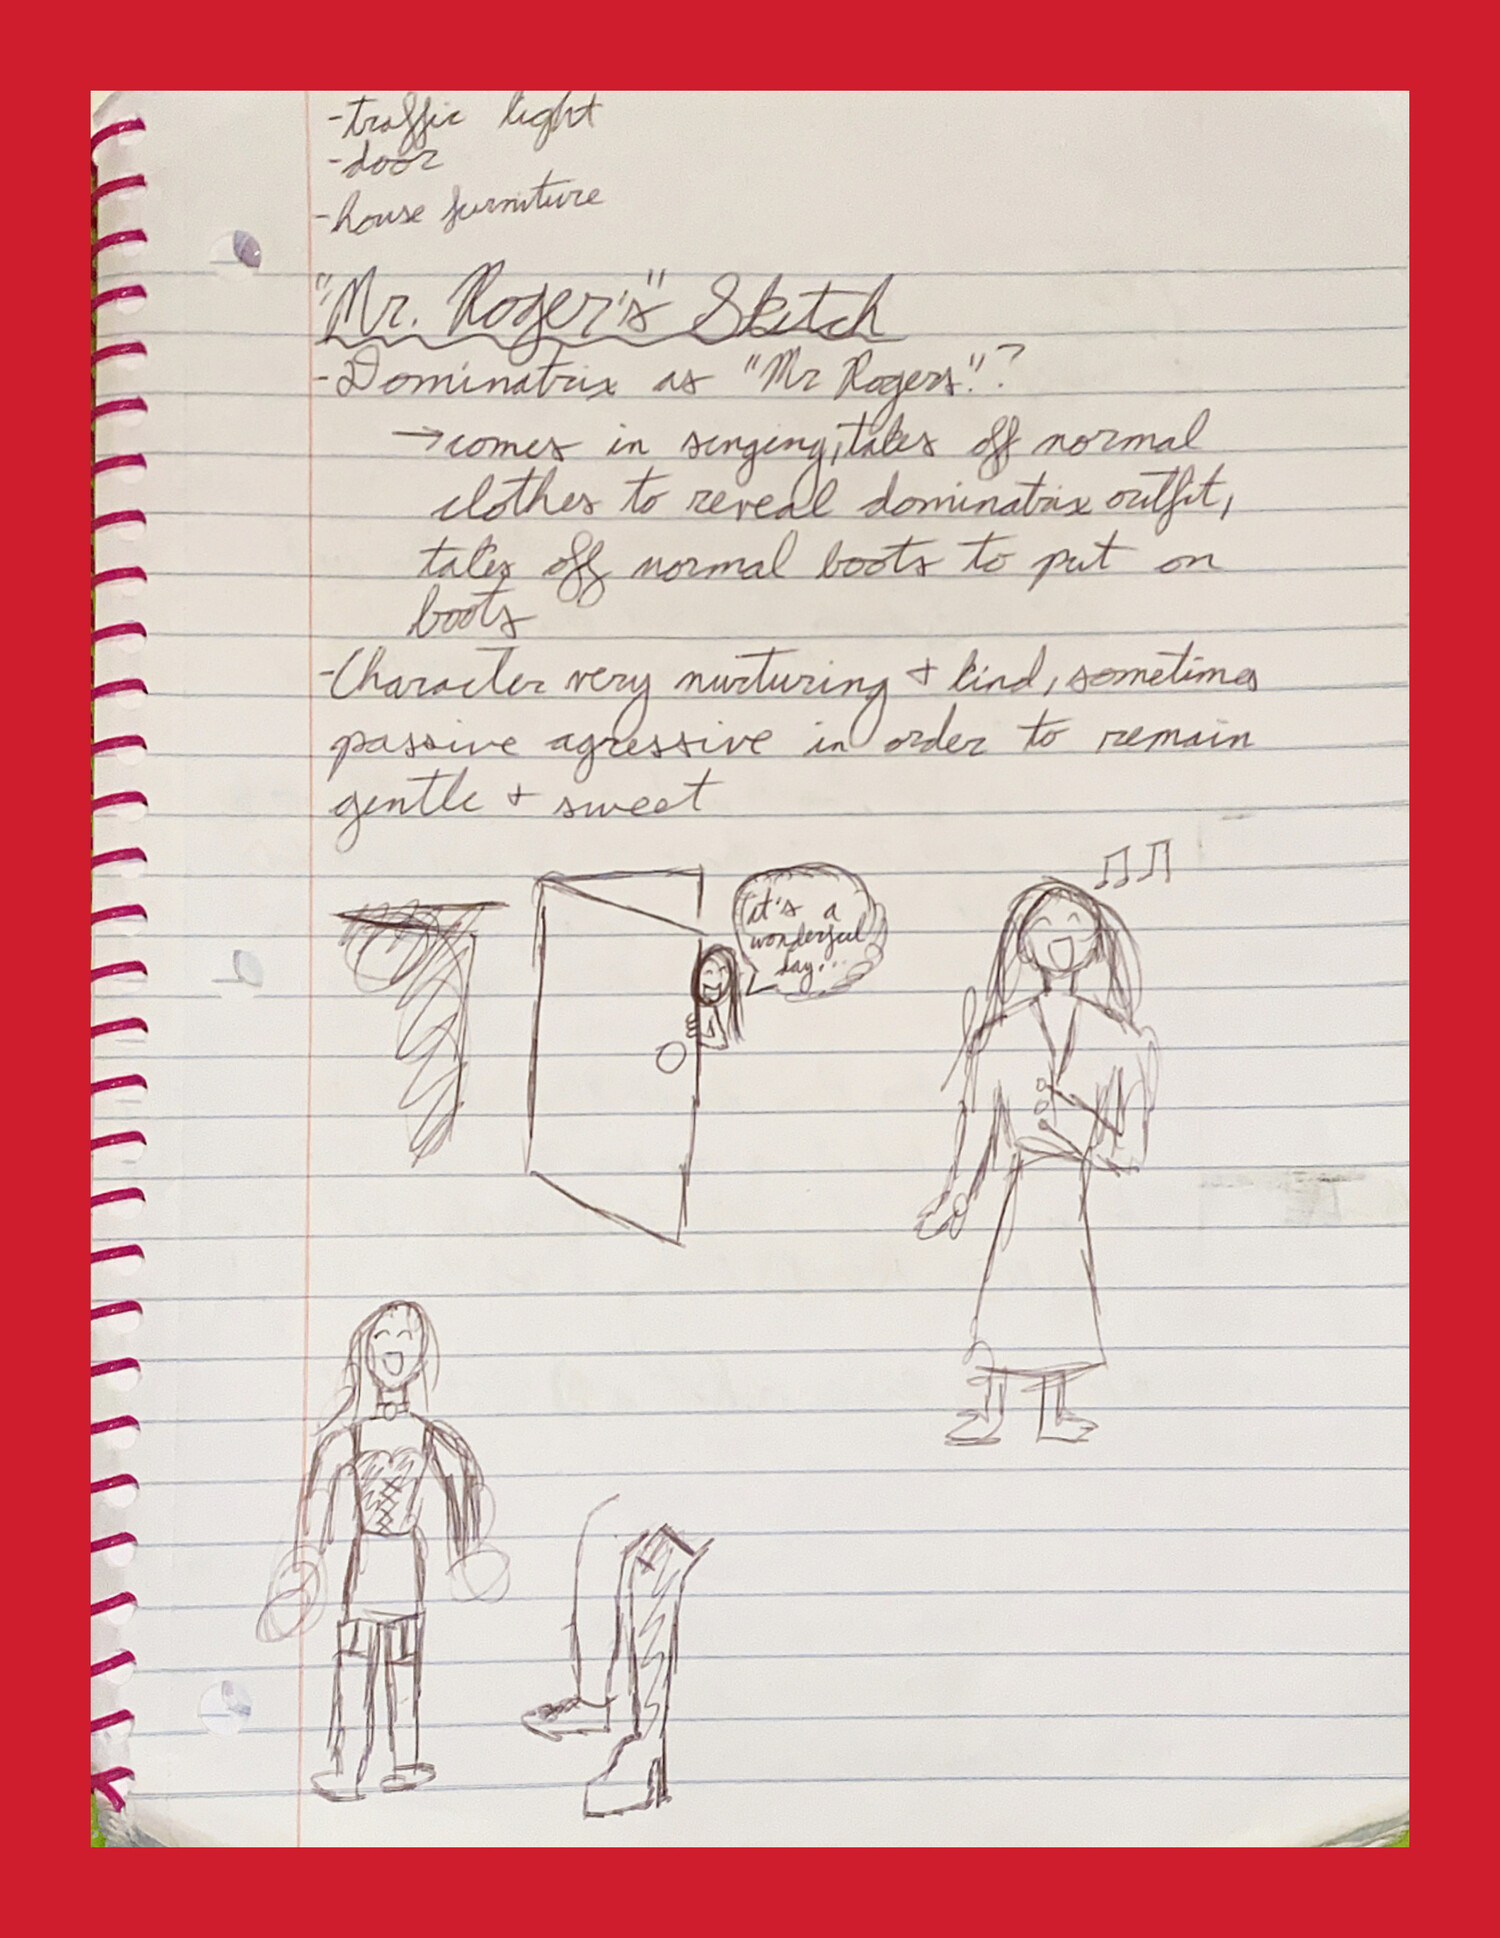 -traffic light
-door
-house furniture
"Mr. Roger's" Sketch
-Dominatrix as "Mr Rogers"?
→comes in singing, takes off normal
clothes to reveal dominatrix outfit,
takes off normal boots to put on
boots
-Character very nurturing + kind, sometimes
passive agressive in order to remain
gentle + sweet
it's a
wonderful
day...